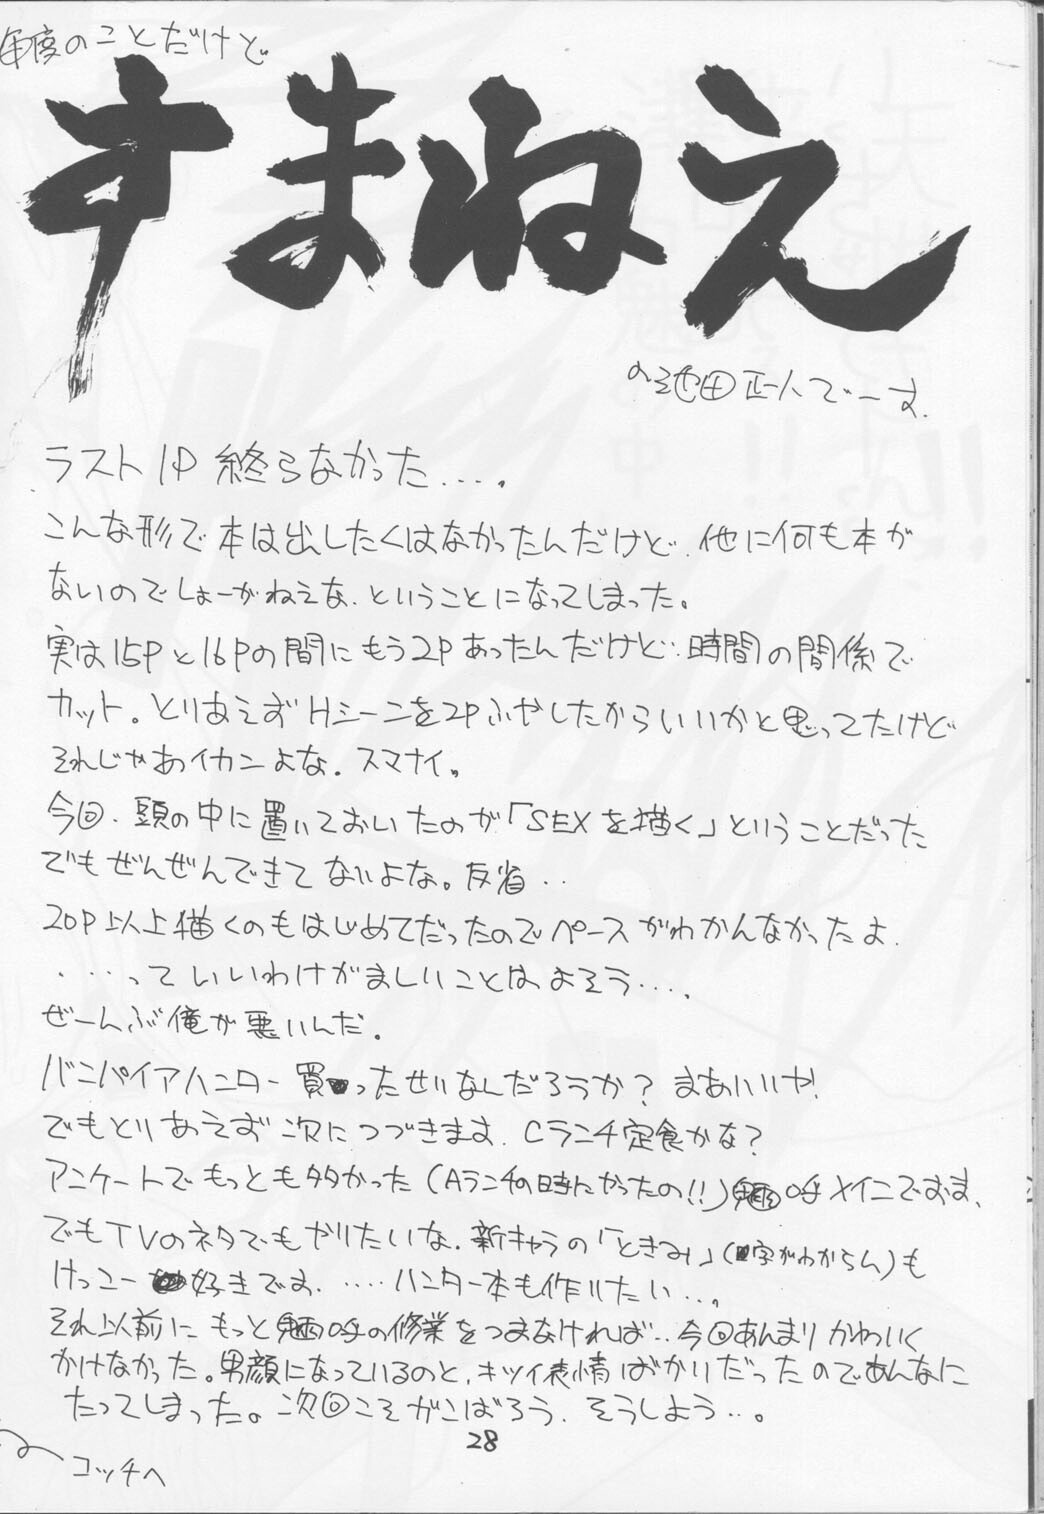 毎度のことだけど
すまねえ
の池田正人でーす.
ラスト1P 終らなかった....。
こんな形で本は出したくはなかったんだけど、他に何も本が
ないのでしょーがねえな、ということになってしまった。
実は15Pと16Pの間にもう2Pあったんだけど、時間の関係で
カット。とりあえずHシーンを2Pふやしたからいいかと思ってたけど
それじゃあイカンよな。スマナイ。
今回、頭の中に置いておいたのが「SEXを描く」ということだった
でもぜんぜんできてないよな。反省‥
20P以上描くのもはじめてだったのでペースがわかんなかったよ.
‥‥っていいわけがましいことは、よそう‥‥。
ぜーんぶ俺が悪いんだ。
バンパイアハンター買ったせいなんだろうか?まあいいや!
でもとりあえず次につづきます。Cランチ定食かな?
アンケートでもっとも多かった(Aランチの時にかったの!!)魎呼メインでおま、
でもTVのネタでもやりたいな、新キャラの「ときみ」(字がわからん)も
けっこー好きです。‥‥ハンター本も作りたい‥。
それ以前にもっと魎呼の修業をつまなければ‥今回あんまりかわいく
かけなかった。男顔になっているのと、キツイ表情ばかりだったのであんなに
たってしまった。次回こそがんばろう、そうしよう‥。
28
コッチへ